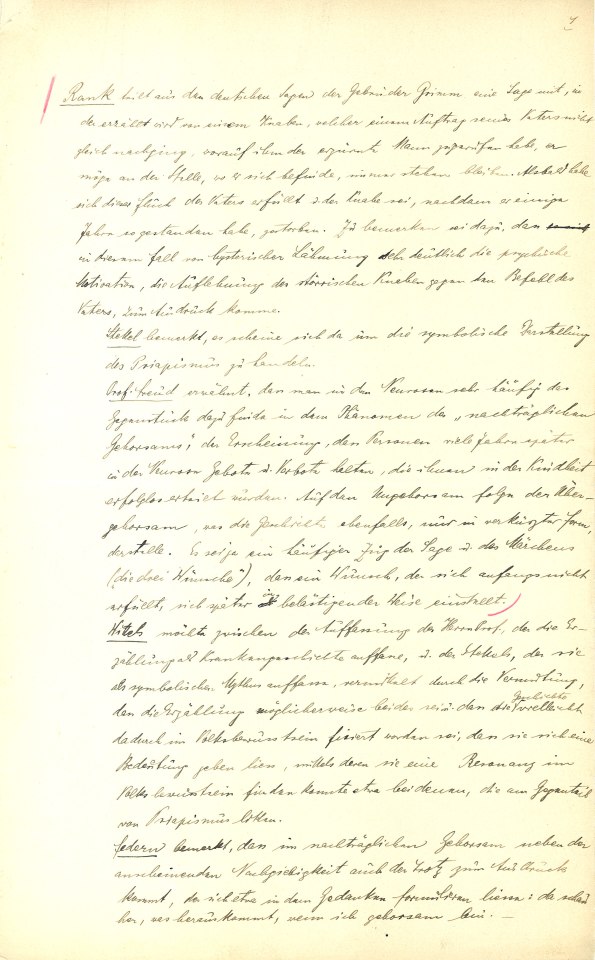 Rank teilt aus den deutschen Sagen der Gebrüder Grimm eine Sage mit, in
der erzählt wird von einem Knaben, welcher einem Auftrag seines Vaters nicht
gleich nachging, worauf ihm der erzürnte Mann zugerufen habe, er
möge an der Stelle, wo er sich befinde, immer stehen bleiben. Alsbald habe
sich dieser Fluch des Vaters erfüllt u. der Knabe sei, nachdem er einige
Jahre so gestanden habe, gestorben. Zu bemerken sei dazu, dass
in diesem Fall von hysterischer Lähmung sehr deutlich die psychische
Motivation, die Auflehnung des störrischen Knaben gegen den Befehl des
Vaters, zum Ausdruck komme.
Stekel bemerkt, es scheine sich da um die symbolische Darstellung
des Priapismus zu handeln.
Prof. Freud erwähnt, dass man in den Neurosen sehr häufig das
Gegenstück dazu finde in dem Phänomen des „nachträglichen
Gehorsams", der Erscheinung, dass Personen viele Jahre später
in der Neurose Gebote u. Verbote halten, die ihnen in der Kindheit
erfolglos erteilt wurden. Auf den Ungehorsam folge der Über-
gehorsam, was die Geschichte ebenfalls, nur in verkürzter Form,
darstelle. Es sei ja ein häufiger Zug der Sage u. des Märchens
(„die drei Wünsche"), dass ein Wunsch, der sich anfangs nicht
erfüllt, sich später in belästigender Weise einstellt.
Wittels möchte zwischen der Auffassung des Herrn Prof., der die Er-
zählung als Krankengeschichte auffasse, u. der Stekels, der sie
als symbolischen Mythus auffasse, vermittelt durch die Vermutung,
dass die Erzählung möglicherweise beides sei u. dass die Geschichte vielleicht
dadurch im Volksbewusstsein fixiert worden sei, dass sie sich eine
Bedeutung geben liess, mittels deren sie eine Resonanz im
Volksbewusstsein finden konnte etwa bei denen, die am Gegenteil
von Priapismus litten.
Federn bemerkt, dass im nachträglichen Gehorsam neben der
anscheinenden Nachgiebigkeit auch der Trotz zum Ausdruck
kommt, der sich etwa in dem Gedanken formulieren liesse: da schau
her, was herauskommt, wenn ich gehorsam bin. —